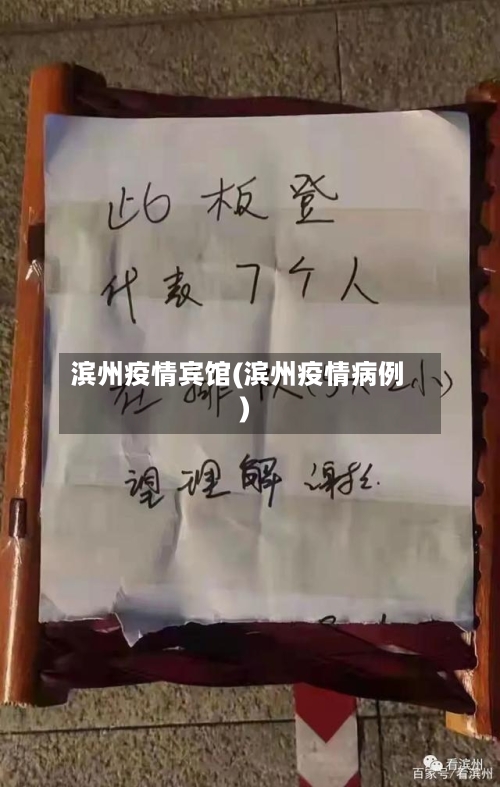 此板登
代表7个人
滨州疫情宾馆(滨州疫情病例
)
在排队(5大2小)
望理解 谢谢
看滨州
百家号/看滨州